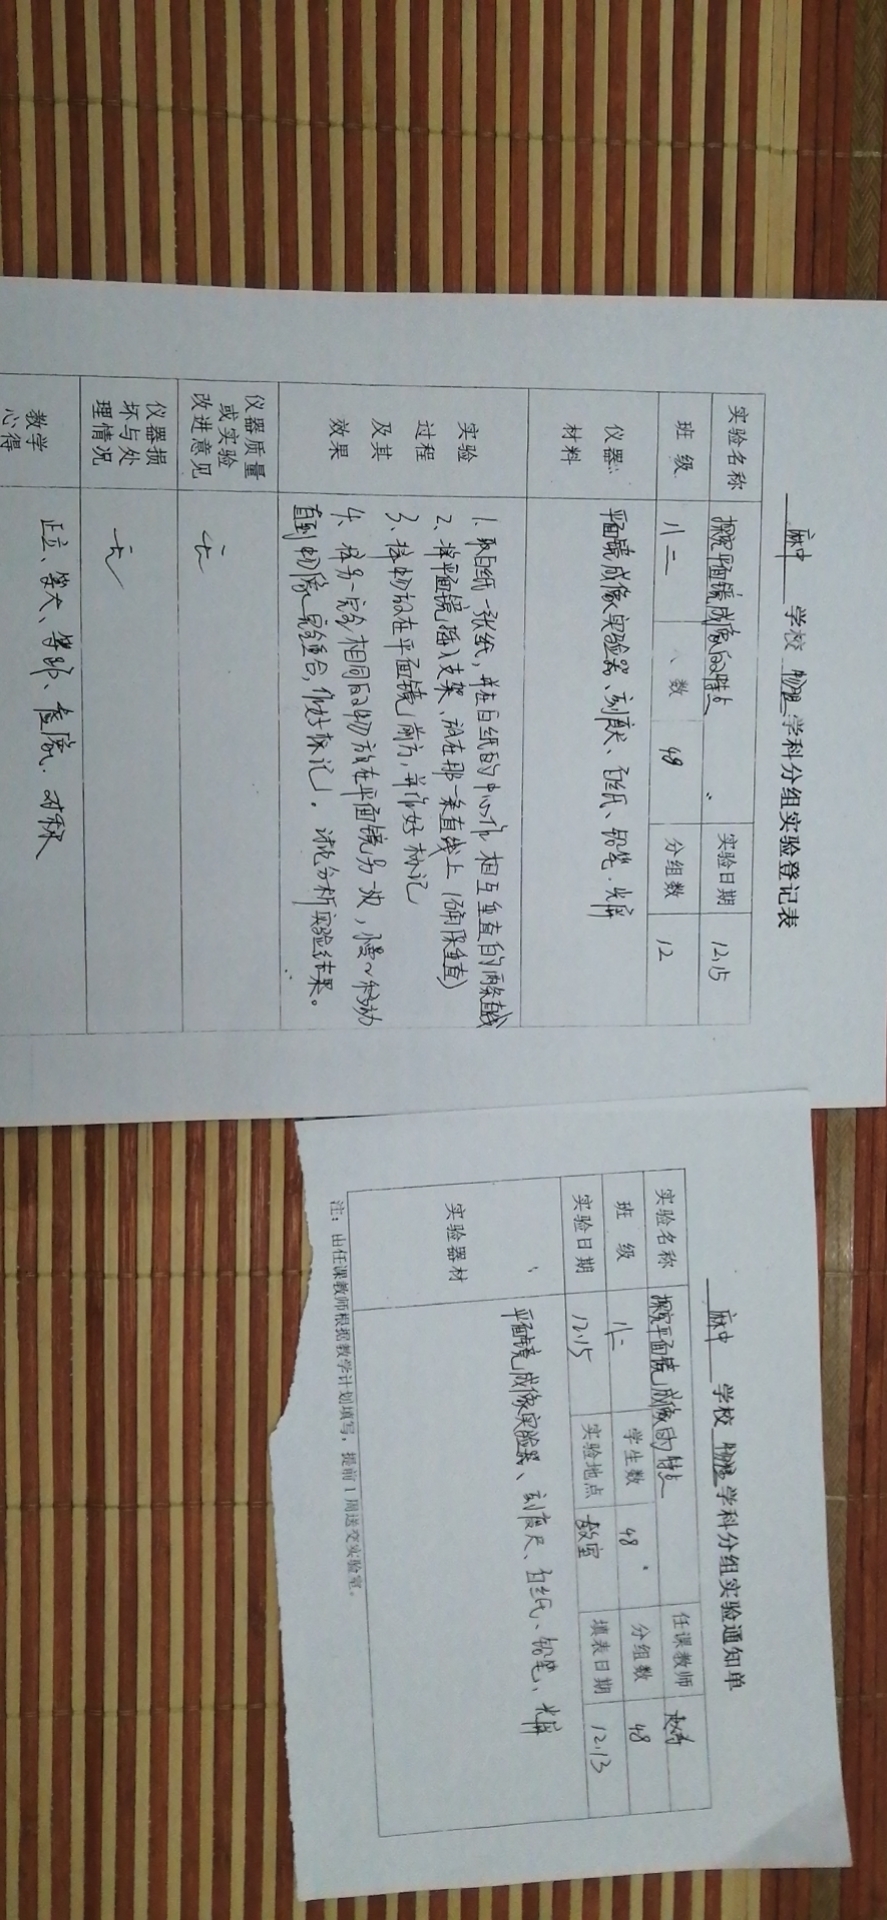 麻中 学校 物理 学科分组实验登记表
实验名称 探究平面镜成像的特点 实验日期 12.15
班 级 八二 数 48 分组数 12
仪器 材料 平面镜成像实验器、刻度尺、白纸、铅笔、光屏
实验 过程 及其 效果
1. 取白纸一张纸,并在白纸的中心作相互垂直的两条直线
2、将平面镜插入支架、放在那一条直线上(确保垂直)
3、将物放在平面镜前方,并作好标记
4、将另一完全相同的物放在平面镜另一边,慢慢移动
直到物像完全重合,作好标记。讨论分析实验结果。
仪器质量 或实验 改进意见 无
仪器损 坏与处 理情况 无
教学 心得 正立、等大、等距、虚像、对称
麻中 学校 物理 学科分组实验通知单
实验名称 探究平面镜成像的特点 任课教师
班 级 八二 学生数 48 分组数 48
实验日期 12.15 实验地点 教室 填表日期 12.13
实验器材 平面镜成像实验器、刻度尺、白纸、铅笔、光屏
注:由任课教师根据教学计划填写,提前1周送交实验室。